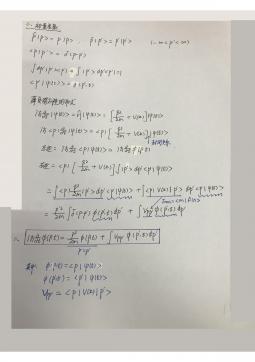 p̂|p> = p|p>, p̂|p'> = p'|p'> (-∞<p'<∞)
<p|p'> = δ(p-p')
∫dp'|p'><p'| = ∫|p'>dp'<p'| = 1
<p'|ψ(t)> = φ(p',t)
iħ ∂/∂t |ψ(t)> = Ĥ|ψ(t)> = [p̂²/2m + V(x)]|ψ(t)>
iħ <p|∂/∂t|ψ(t)> = <p|[p̂²/2m + V(x)]|ψ(t)>
左边 = iħ ∂/∂t <p|ψ(t)> = iħ ∂/∂t φ(p,t)
右边 = <p|[p̂²/2m + V(x)]∫|p'>dp'<p'|ψ(t)>
= ∫<p|p̂²/2m|p'>dp'<p'|ψ(t)> + ∫<p|V(x)|p'>dp'<p'|ψ(t)>
= p²/2m ∫δ(p-p')φ(p',t)dp' + ∫Vpp' φ(p',t)dp'
∴ iħ ∂/∂t φ(p,t) = p²/2m φ(p,t) + ∫Vpp' φ(p',t)dp'
φ(p,t) = <p|ψ(t)>
φ(p',t) = <p'|ψ(t)>
Vpp' = <p|V(x)|p'>